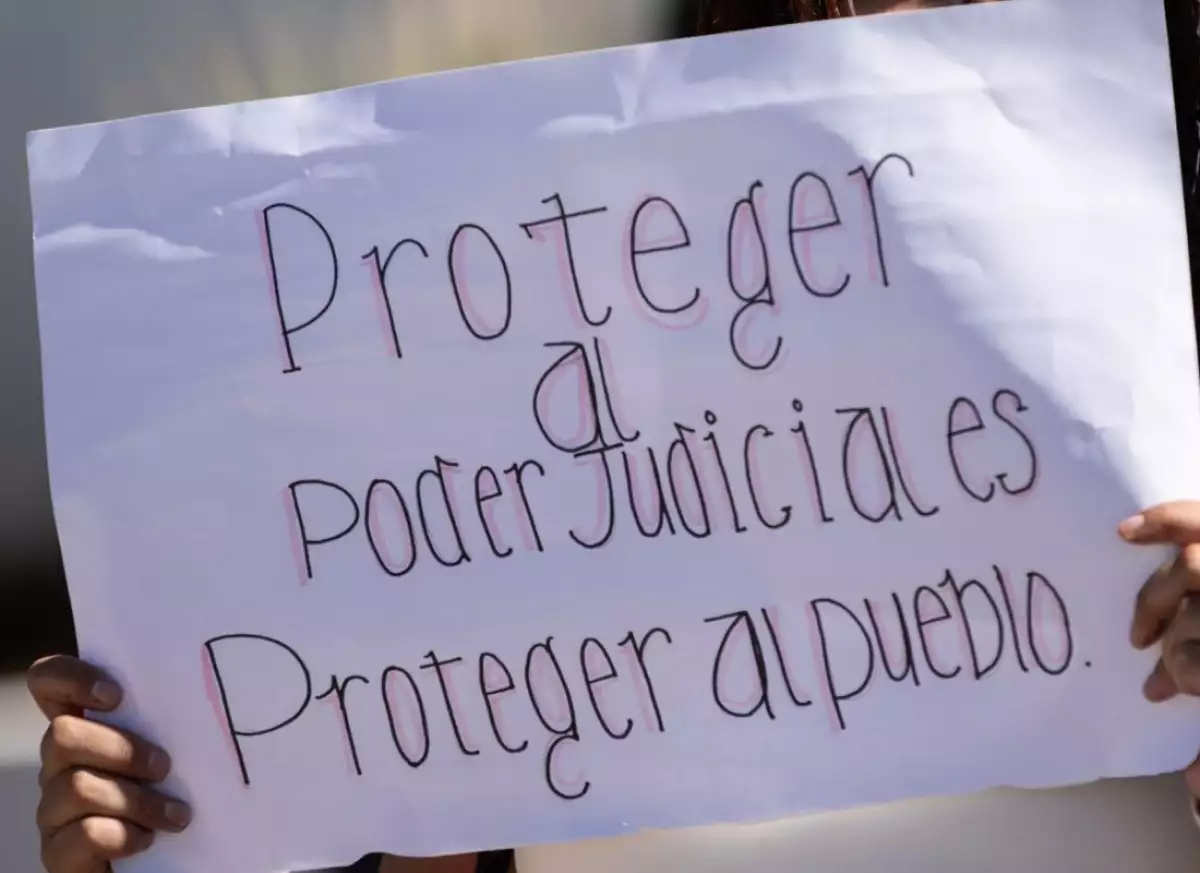 Proteger
al
Poder Judicial es
Proteger al pueblo.